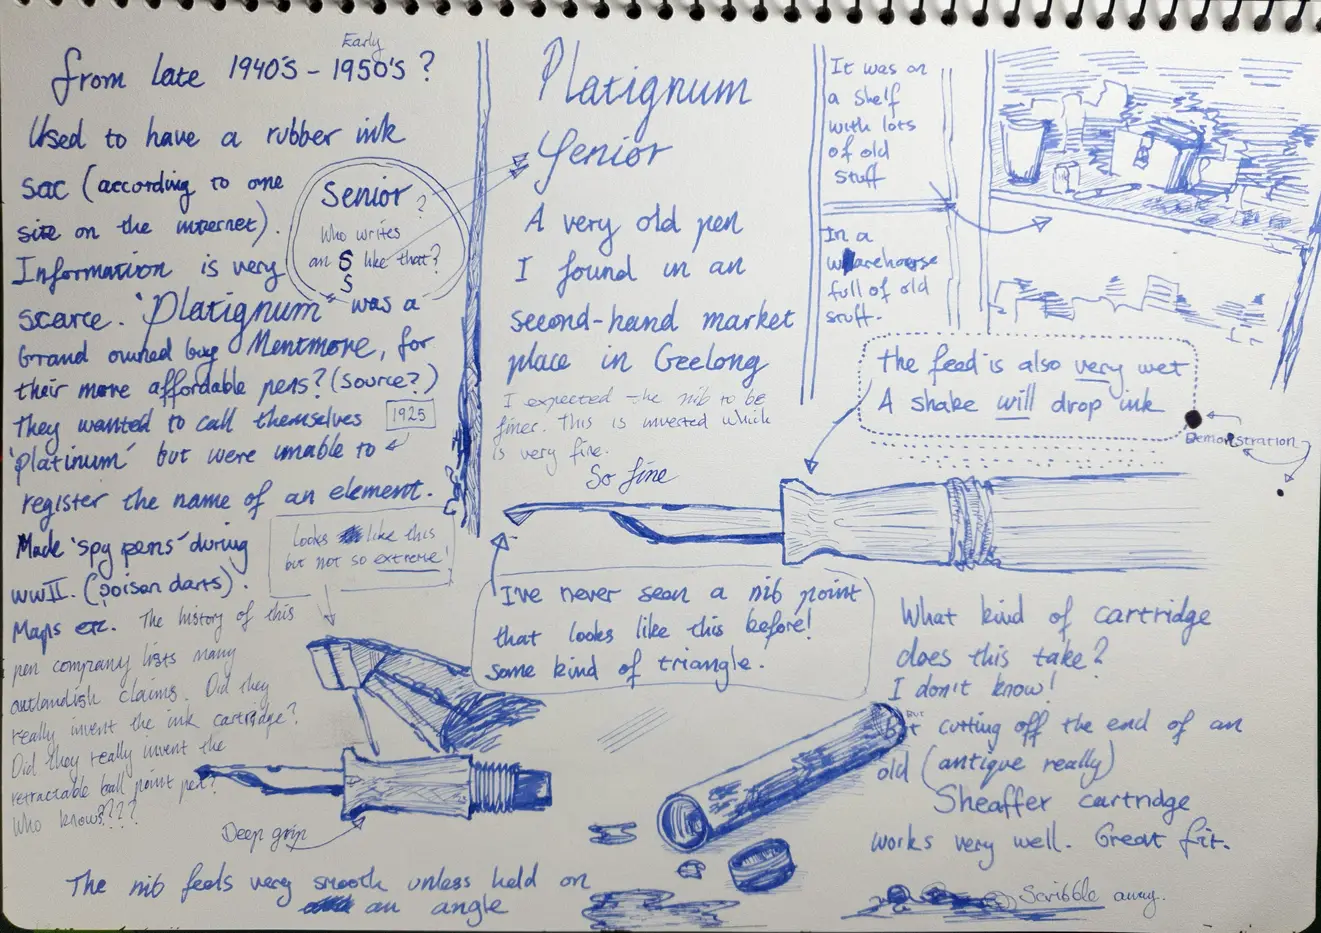 From late 1940's - Early 1950's ?
Used to have a rubber ink
sac (according to one
site on the internet).
Information is very
scarce. 'Platignum' was a
Brand owned buy Mentmore, for
their more affordable pens? (source?)
They wanted to call themselves
1925
'platinum' but were unable to
register the name of an element.
Made 'spy pens' during
WWII. (poison darts).
Maps etc. The history of this
pen company lists many
outlandish claims. Did they
really invent the ink cartridge?
Did they really invent the
retractable ball point pen?
Who knows???
Senior
?
Who writes
an S like that?
S
Looks like this
but not so extreme!
Deep grip
The nib feels very smooth unless held on
an angle
Platignum
Senior
A very old pen
I found in an
second-hand market
place in Geelong
I expected the nib to be
finer. This is inverted which
is very fine.
So fine
I've never seen a nib point
that looks like this before!
some kind of triangle.
It was on
a shelf
with lots
of old
stuff
In a
warehouse
full of old
stuff.
The feed is also very wet
A shake will drop ink
Demonstration
What kind of cartridge
does this take?
I don't know!
But cutting off the end of an
old (antique really)
Sheaffer cartridge
works very well. Great fit.
Scribble away.